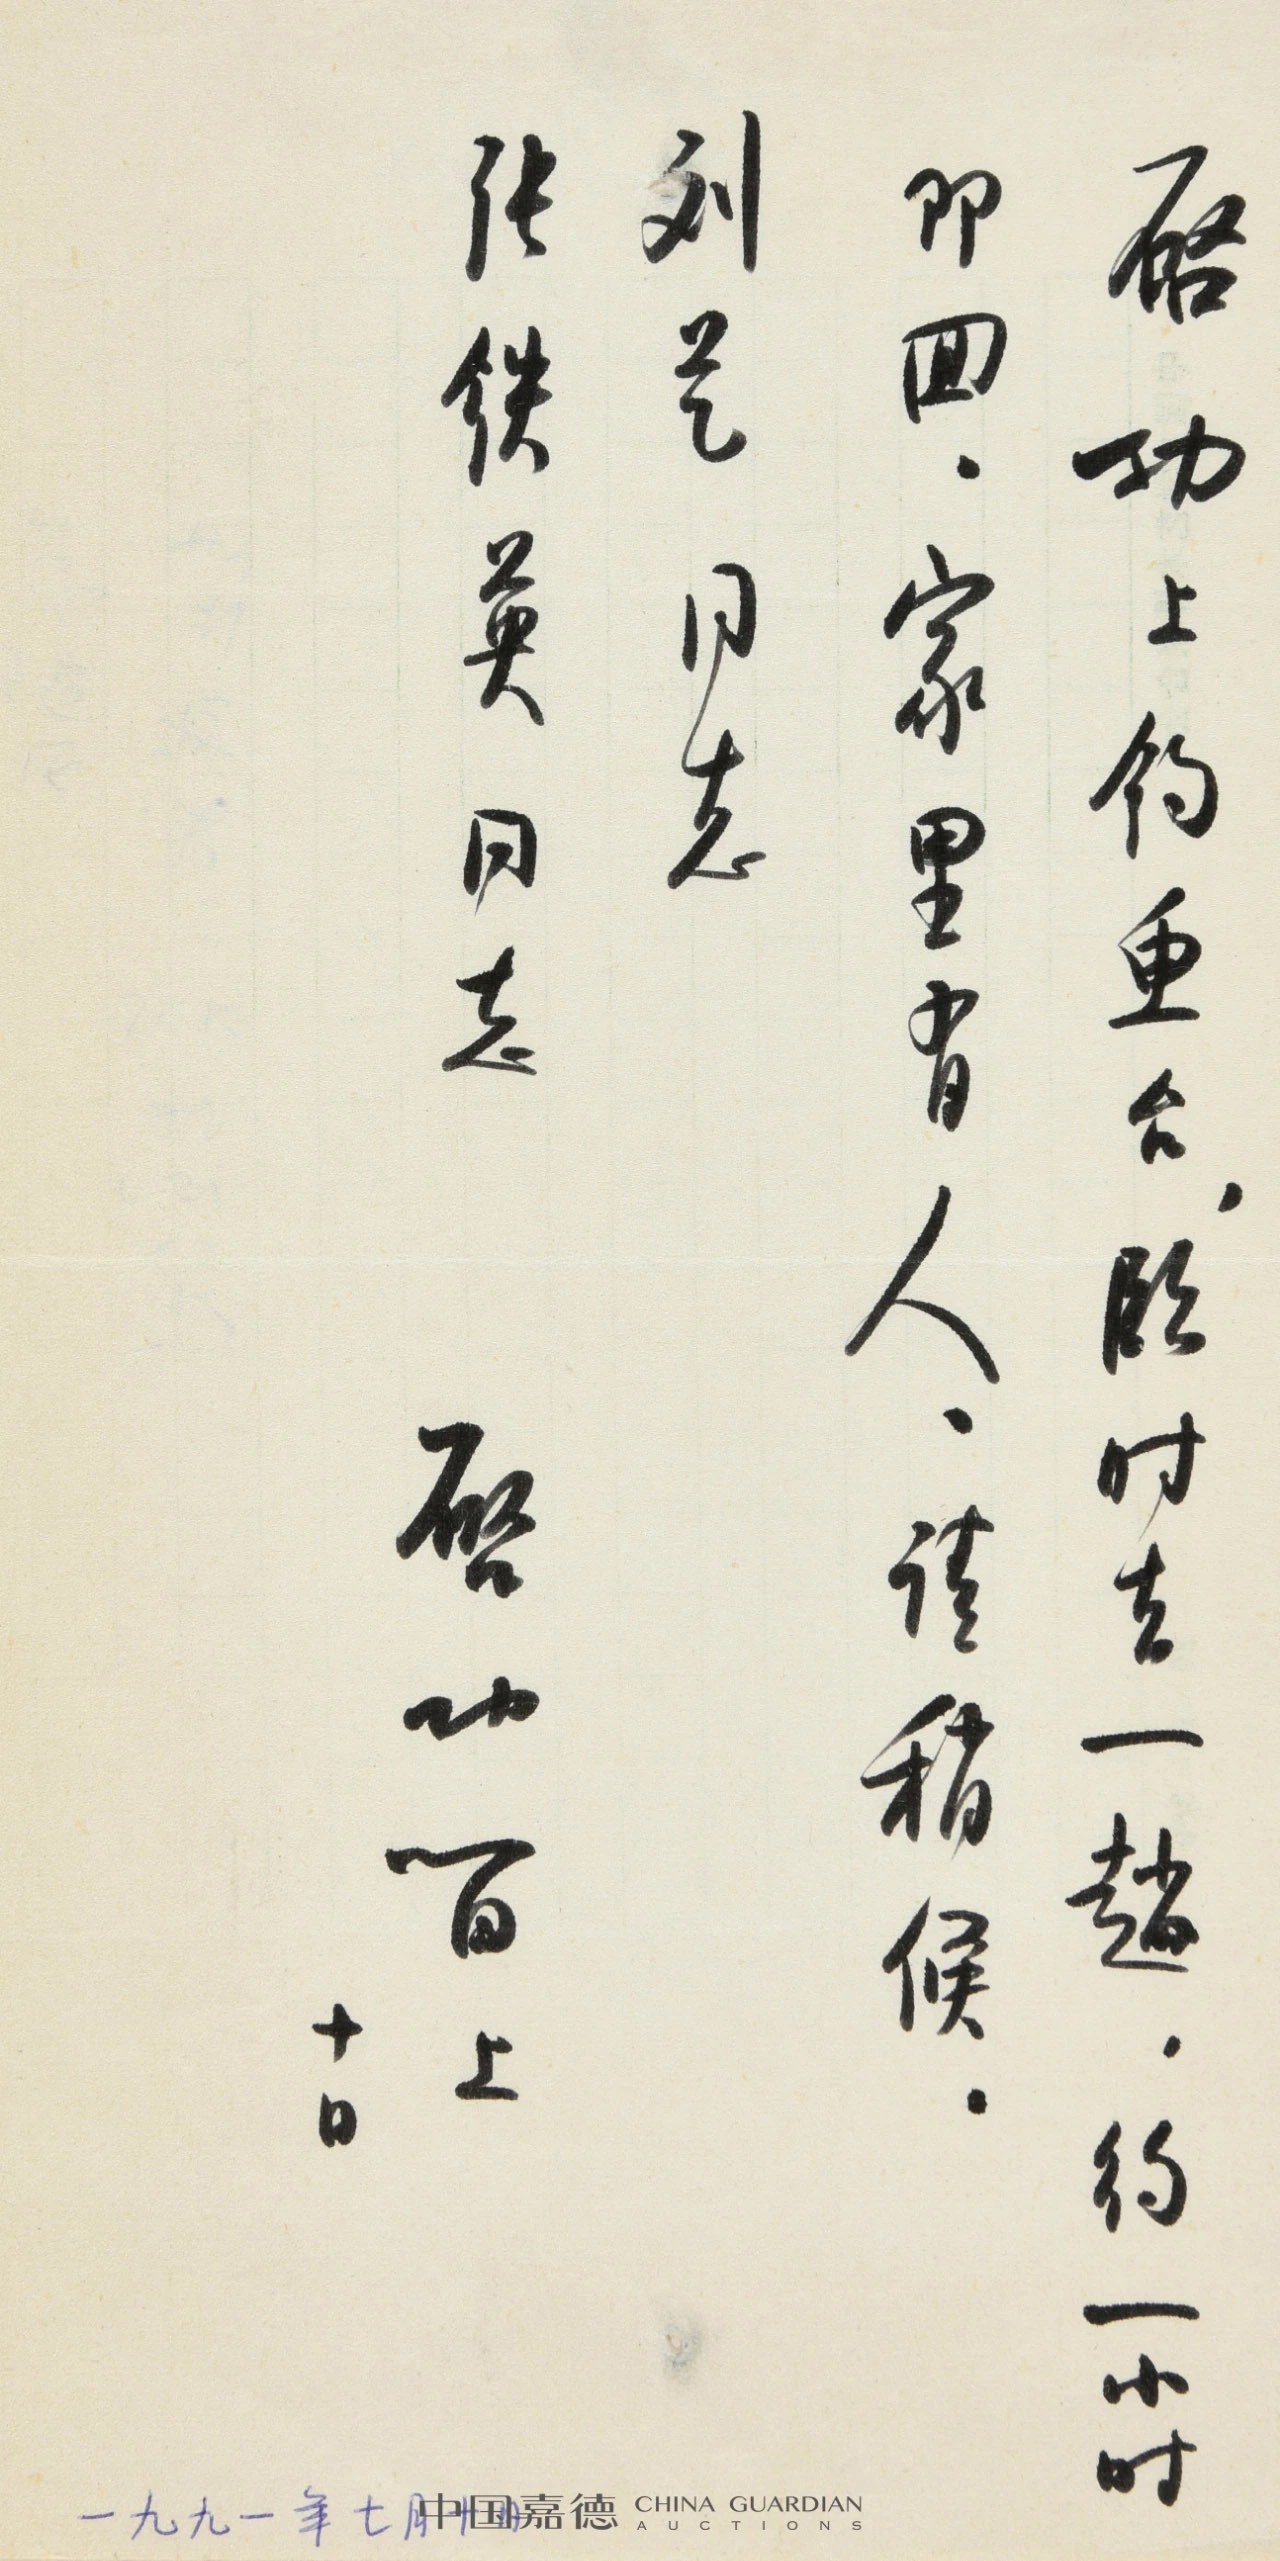 启功上钓鱼台，临时去一趟，约一小时
即回。家里有人，请稍候。
刘艺同志
张铁英同志
启功留上
十日
一九九一年七月十日
中国嘉德 CHINA GUARDIAN
AUCTIONS